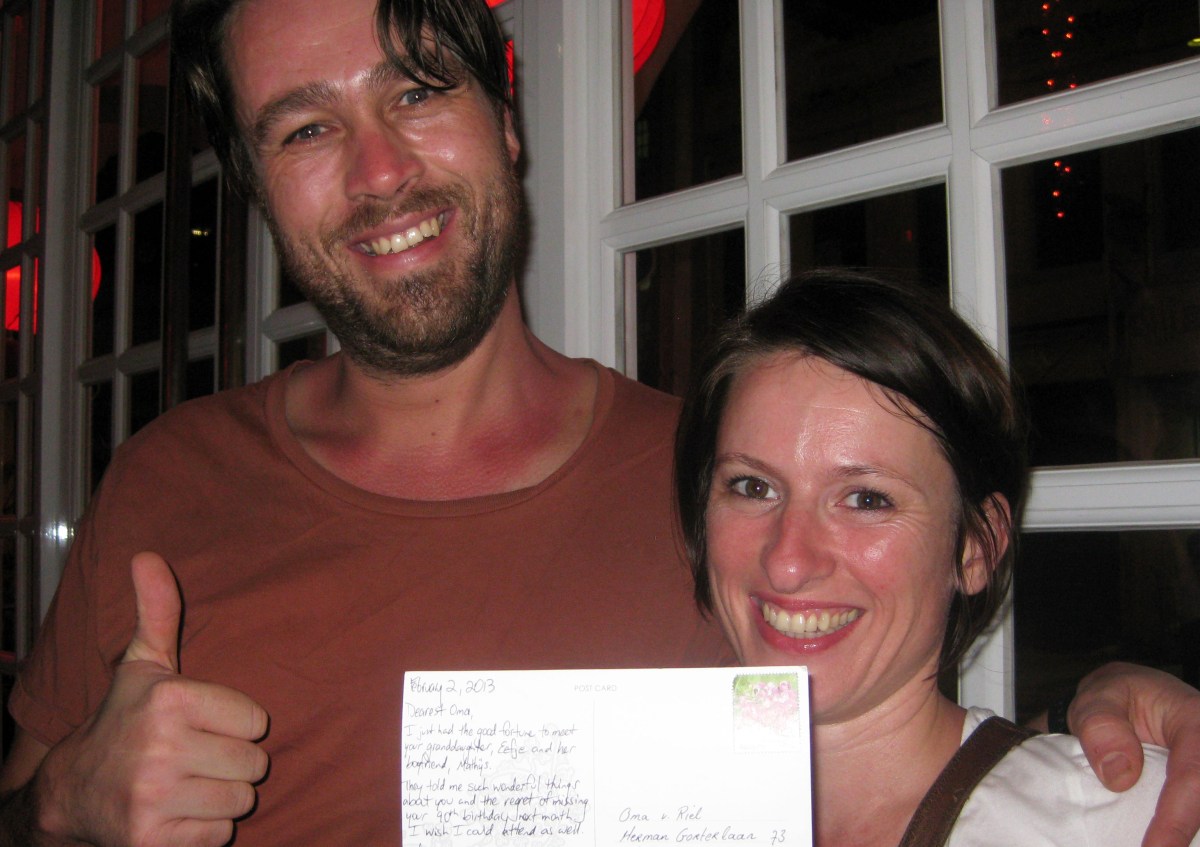 February 2, 2013
POST CARD
Dearest Oma,
I just had the good fortune to meet
your granddaughter, Eefje and her
boyfriend, Mathijs.
They told me such wonderful things
about you and the regret of missing
your 90th birthday next month.
I wish I could attend as well.
Oma v. Riel
Herman Gorterlaan 73